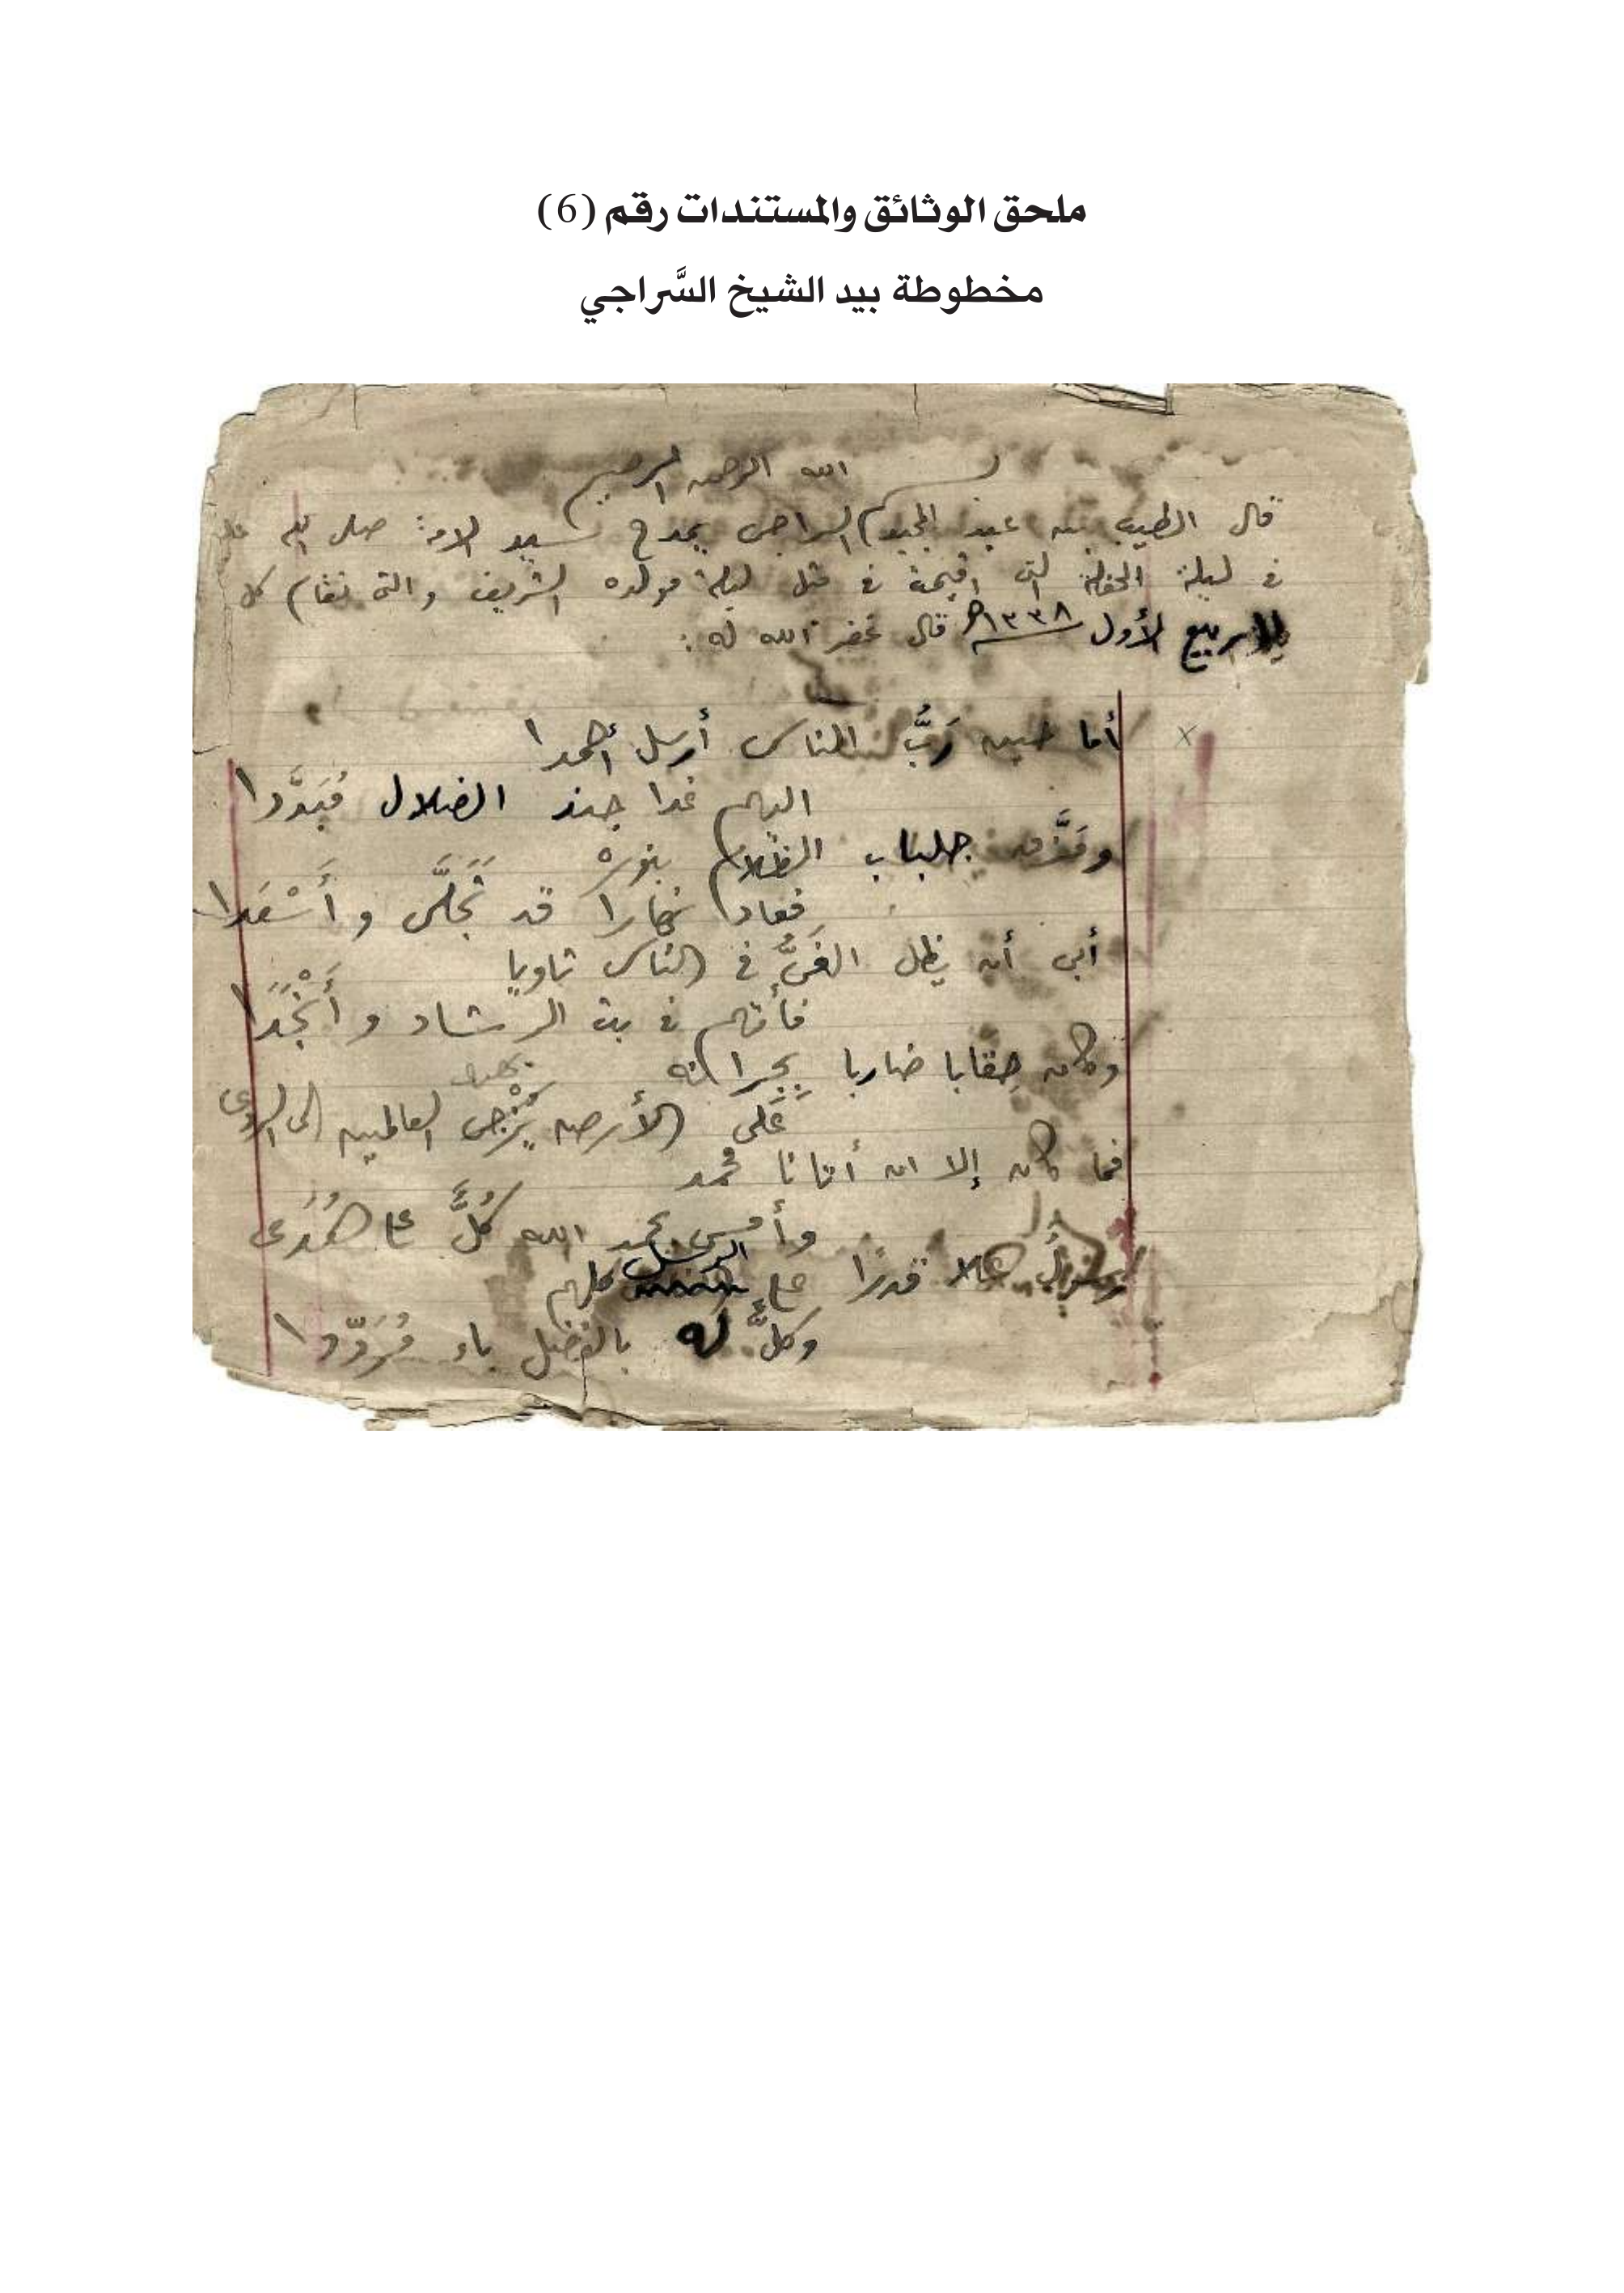 ملحق الوثائق والمستندات رقم (6)
مخطوطة بيد الشيخ السَّراجي
بسم الله الرحمن الرحيم
قال الطيب بن عبد المجيد السراجى يمدح سيد الامة صلى الله عليه
فى ليلة الحفلة التى اقيمت فى مثل ليلة مولده الشريف والتى تقام كل
ربيع الأول ١٣٣٨ه قال غفر الله له :
أما حين رَبُّ الناس أرسل أحمدا
اليهم غدا جند الضلال مُبَدَّدا
ومَزَّق جلباب الظلام بنوره
فعاد نهارا قد تَجَلَّى وأَسْعَدا
أبى أن يظل الغَىُّ فى الناس ثاويا
فأتهم فى بث الرشاد وأَنْجَدَا
وكان ضاربا بجرانه
عَلى الأرض يُزْجى العالمين الى الردى
فما كان إلا ان أتانا محمد
وأمسى بحمد الله كُلٌّ على هُدَى
رسولٌ علا قدرًا على الرسل كلهم
وكلٌّ له بالفضل باء مُرَدّدا